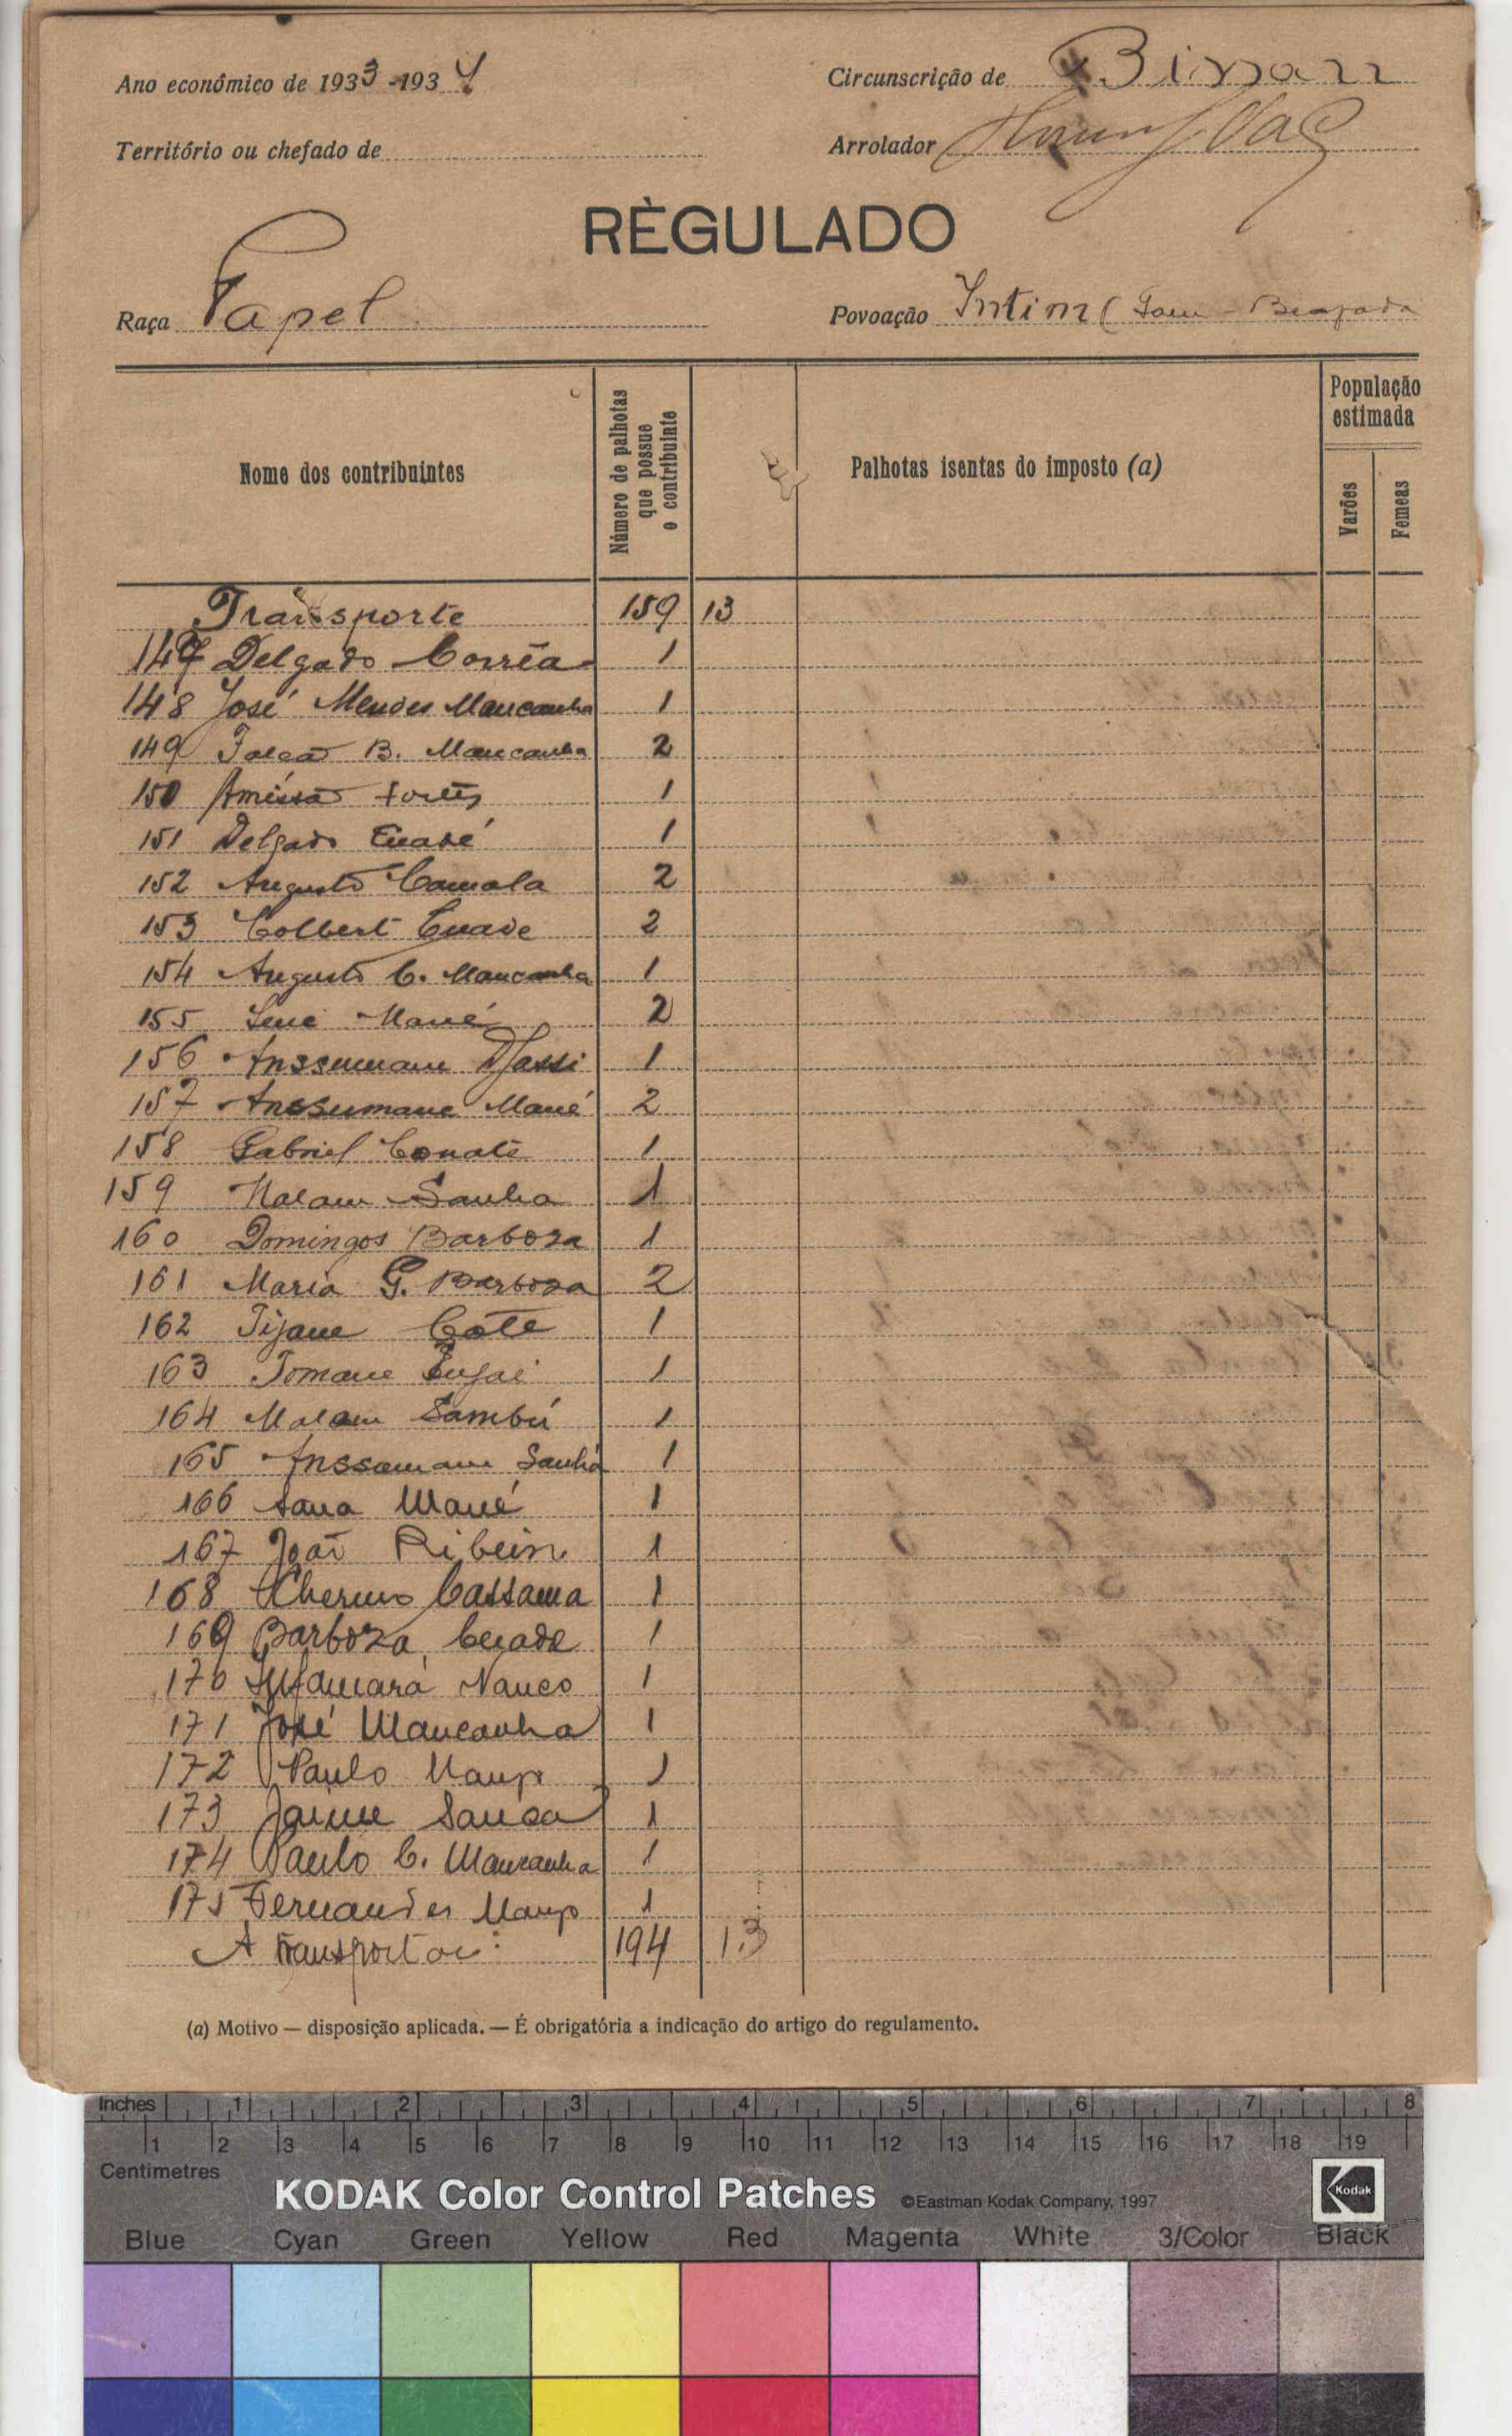 Ano económico de 1933-1934
Circunscrição de Bissau
Território ou chefado de
Arrolador
RÈGULADO
Raça Papel
Povoação Intim ( Beafada
Nome dos contribuintes
Número de palhotas que possue o contribuinte
Palhotas isentas do imposto (a)
População estimada
Varões
Femeas
Transporte 159 13
147 Delgado Corrêa 1
148 José Mendes Mancanha 1
149 B. Mancanha 2
150 Amissão 1
151 Delgado 1
152 Augusto Camala 2
153 Colbert Cuade 2
154 Augusto C. Mancanha 1
155 Mané 2
156 Anssumane Djassi 1
157 Anssumane Mané 2
158 Gabriel Conaté 1
159 Malam Sanha 1
160 Domingos Barboza 1
161 Maria G. Barboza 2
162 Tijane Cote 1
163 Tomane 1
164 Malam Sambú 1
165 Anssamane Sanhá 1
166 Sana Mané 1
167 João Ribeiro 1
168 Cherno Cassama 1
169 Barboza 1
170 Nanco 1
171 José Mancanha 1
172 Paulo 1
173 Jaime 1
174 Paulo C. Mancanha 1
175 Fernandes 1
A transportar: 194 13
(a) Motivo — disposição aplicada. — É obrigatória a indicação do artigo do regulamento.
Inches 1 2 3 4 5 6 7 8
1 2 3 4 5 6 7 8 9 10 11 12 13 14 15 16 17 18 19
Centimetres
KODAK Color Control Patches ©Eastman Kodak Company, 1997 Kodak
Blue Cyan Green Yellow Red Magenta White 3/Color Black